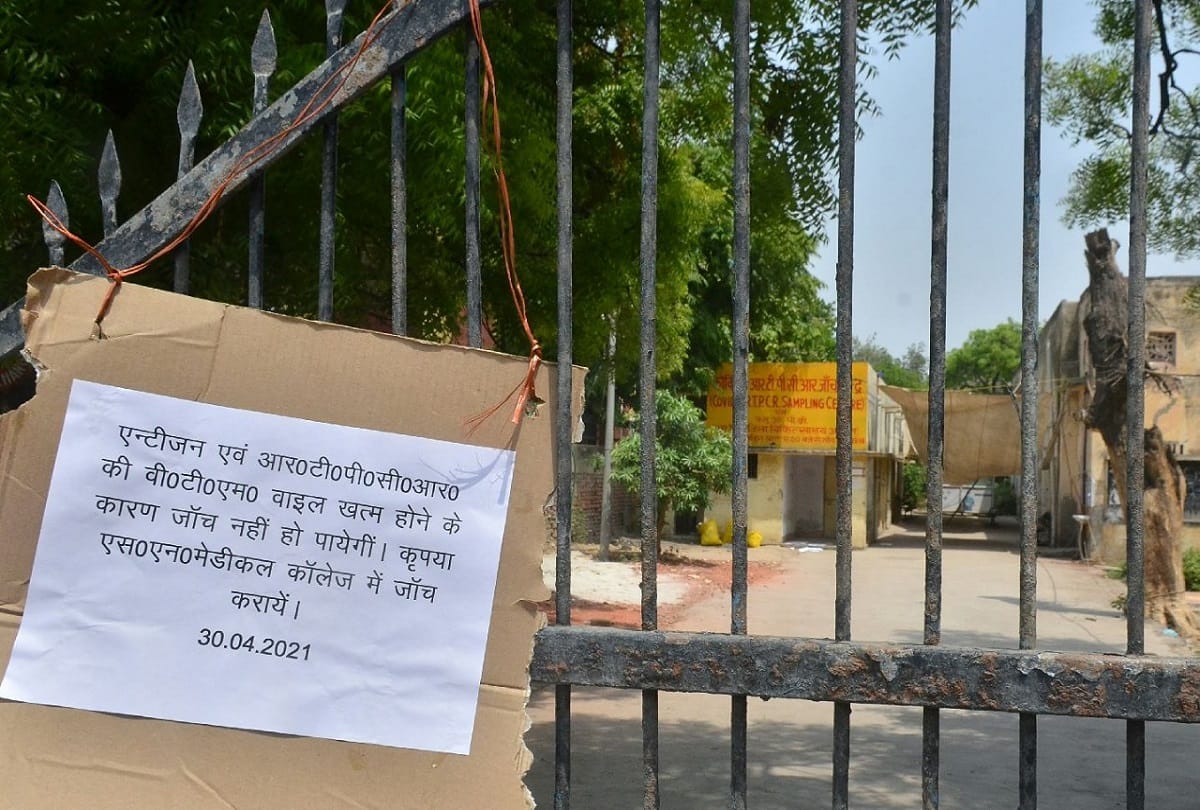 एन्टीजन एवं आर0टी0पी0सी0आर0
की वी0टी0एम0 वाइल खत्म होने के
कारण जॉच नहीं हो पायेगीं। कृपया
एस0एन0मेडीकल कॉलेज में जॉच
करायें।
30.04.2021
आर टी पी सी आर जाँच
(Covid R.T.P.C.R. SAMPLING CENTRE)